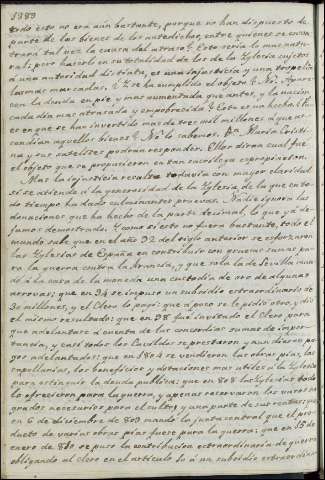 1889
todo esto no era aun bastante, porque no han dispuesto de
parte de los bienes de los antedichos, entre quienes se encon-
trará tal vez la causa del atraso? Esto seria lo mas natu-
ral; pero hacerlo en su totalidad de los de la Yglesia sujetos
á una autoridad distinta, es una injusticia y una tropelia
las mas marcadas. Y se ha cumplido el objeto? No. Apare-
ce la deuda en pie y mas aumentada que antes, y la nacion
cada dia mas atrasada y empobrecida. Esto es un hecho.
es en que se han invertido mas de trece mil millones á que as-
cendian aquellos bienes? No lo sabemos. Dª Maria Cristi-
na y sus satelites podran responder. Ellos diran cual fue
el objeto que se propusieron en tan sacrílega expropiacion.
Mas la injusticia resalta todavia con mayor claridad
si se atiende á la generosidad de la Yglesia de la que en to-
do tiempo ha dado culminantes pruevas. Nadie ignora las
donaciones que ha hecho de la parte decimal, lo que ya de-
jamos demostrado. Y como si esto no fuera bastante, todo el
mundo sabe que en el año 92 del siglo anterior se esforzaron
las Yglesias de España en contribuir con gruesas sumas pa-
ra la guerra contra la Francia, y que sola la de Sevilla man-
dó á la casa de la moneda una custodia de oro de algunas
arrovas; que en 94 se impuso un subsidio extraordinario de
30 millones, y el Clero lo pagó; que á poco se le pidió otro, y dio
el mismo resultado; que en 98 fue invitado el Clero para
que adelantase á cuenta de las concordias sumas de impor-
tancia, y casi todos los Cavildos se prestaron y aun dieron pa-
gos adelantados; que en 1804 se vendieron las obras pias, las
capellanias, los beneficios y dotaciones mas utiles á la Yglesia
para extinguir la deuda publica; que en 808 las Yglesias todo
lo ofrecieron para la guerra, y apenas reservaron los vasos sa-
grados necesarios para el culto, y una parte de sus rentas; que
en 6 de diciembre de 809 mandó la junta central que el pro-
ducto de varias obras pias fuese para la guerra; que en 15 de
enero de 810 se puso la contribucion extraordinaria de guerra
obligando al clero en el articulo 50 á un subsidio extraordinar